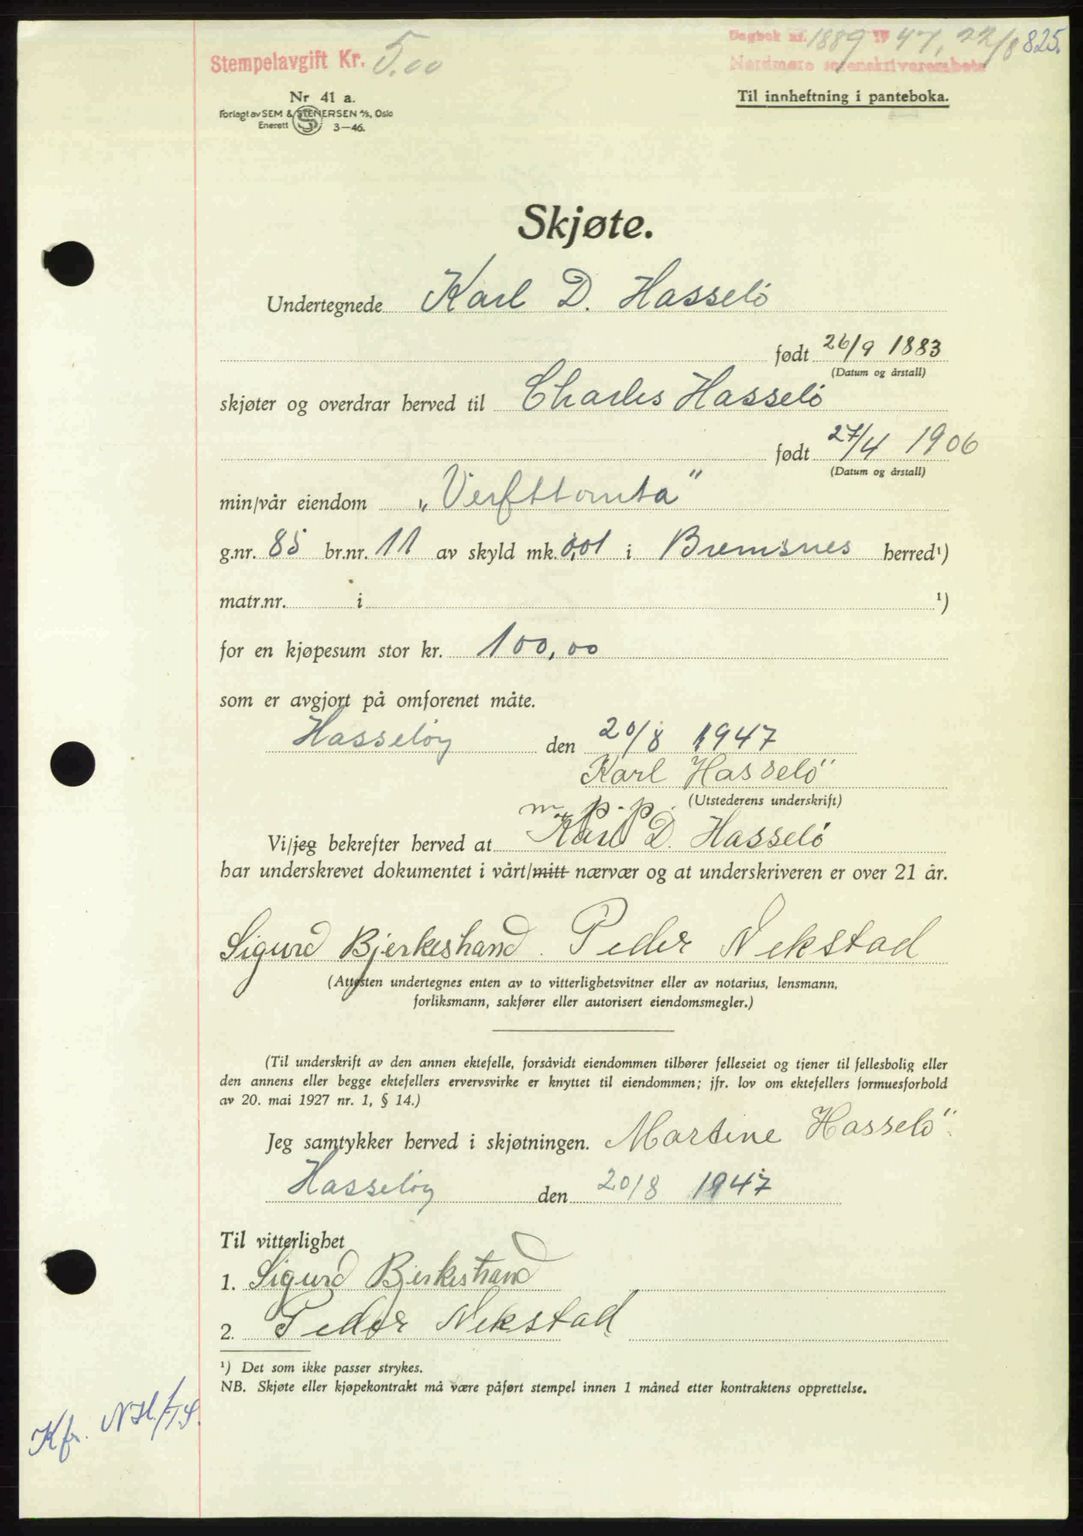 Stempelavgift Kr. 5.00
Dagbok nr. 1889 19 47, 22/8 825.
Nordmøre sorenskriverembete
Nr 41 a.
Forlagt av SEM & STENERSEN A/S, Oslo
Enerett S 3—46.
Til innheftning i panteboka.
Skjøte.
Undertegnede Karl D. Hasselö
født 26/9 1883
(Datum og årstall)
skjøter og overdrar herved til Charles Hasselö
født 27/4 1906
(Datum og årstall)
min/vår eiendom „Verfttomta"
g.nr. 85 br.nr. 11 av skyld mk. 0,01 i Bremsnes herred¹)
matr.nr. i ¹)
for en kjøpesum stor kr. 100,00
som er avgjort på omforenet måte.
Hasseløy den 20/8 1947
Karl Hasselö
(Utstederens underskrift)
m. p. p.
Vi/jeg bekrefter herved at Karl D. Hasselö
har underskrevet dokumentet i vårt/mitt nærvær og at underskriveren er over 21 år.
Sigurd Bjerkestrand. Peder Nekstad
(Attesten undertegnes enten av to vitterlighetsvitner eller av notarius, lensmann,
forliksmann, sakfører eller autorisert eiendomsmegler.)
(Til underskrift av den annen ektefelle, forsåvidt eiendommen tilhører felleseiet og tjener til fellesbolig eller
den annens eller begge ektefellers ervervsvirke er knyttet til eiendommen; jfr. lov om ektefellers formuesforhold
av 20. mai 1927 nr. 1, § 14.)
Jeg samtykker herved i skjøtningen. Martine Hasselö
Hasseløy den 20/8 1947
Til vitterlighet
1. Sigurd Bjerkestrand
2. Peder Nekstad
¹) Det som ikke passer strykes.
NB. Skjøte eller kjøpekontrakt må være påført stempel innen 1 måned etter kontraktens opprettelse.
Kfr. NH/TS.